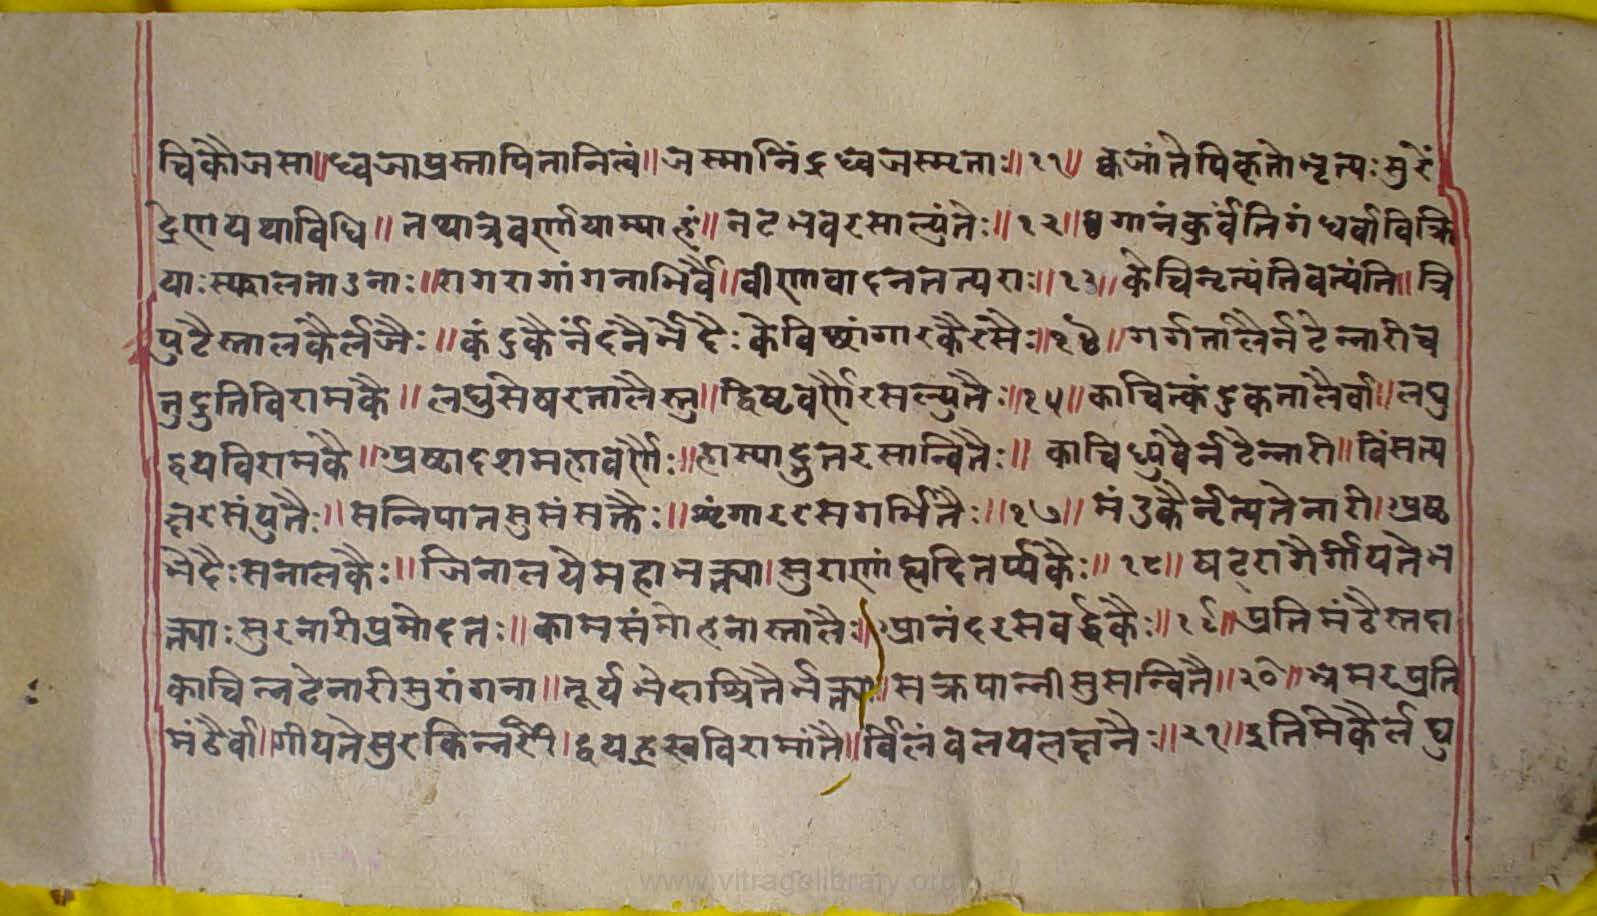 चिकौजसा॥ध्वजाप्रस्तापितानित्वं॥जस्मानिंद्रध्वजस्मृताः॥११॥ कजांतेपिकृतोनृत्यःसुरें
द्रेणयथाविधि॥तथात्रवर्णयाम्याहं॥नटभवरसाल्युंतेः॥१२॥गानंकुर्वंतिगंधर्वाविक्रि
याःस्फालनाऽनाः॥रागरागांगनाभिर्वै॥वीणवादनतत्पराः॥१३॥केचिन्टत्यंतिवत्यंति॥त्रि
पुटैस्तालकैर्लजैः॥कंडुकैर्नर्दनैर्भेदैः केविष्टांगारकैरसैः॥१४॥गर्गतालैर्नटेन्नारीच
तुद्रुतिविरामकै॥लघुसेषरतालैस्तु॥द्विष्टवर्णैरसल्युतैः॥१५॥काचिन्कंडुकतांलैर्वा॥लघु
द्वयविरामकै॥अष्टादशमहावर्णैः॥हास्याद्भुतरसान्वितैः॥काचिध्युवैर्नटैन्नारी॥विंसत्य
क्षरसंयुतैः॥सन्निपातसुसंसक्तैः॥शृंगाररसगर्भितैः॥१७॥मंउकैर्नृत्यतेनारी।अष्ट
भेदैःसतालकैः॥जिनालयेमहाभक्त्या।सुराणांह्लदितर्प्यकैः॥१८॥षटरागैर्गीयतेभ
क्त्याःसुरनारीप्रमोदतः॥कामसंमोहनास्तालैः॥आनंदरसवर्द्धकैः॥१९॥प्रतिमंटैस्तदा
काचिन्नटेनारीसुरांगना॥तूर्यभेदाश्रितैर्भक्त्या॥सक्रपान्नीसुसन्वितै॥२०॥भ्रमरप्रति
मंटैर्वा॥गीयतेसुरकिन्नरैरी।द्वयहस्वविरामांतै॥र्विलंवलयलक्षनैः॥२१॥द्रुतिमेकैर्लघु